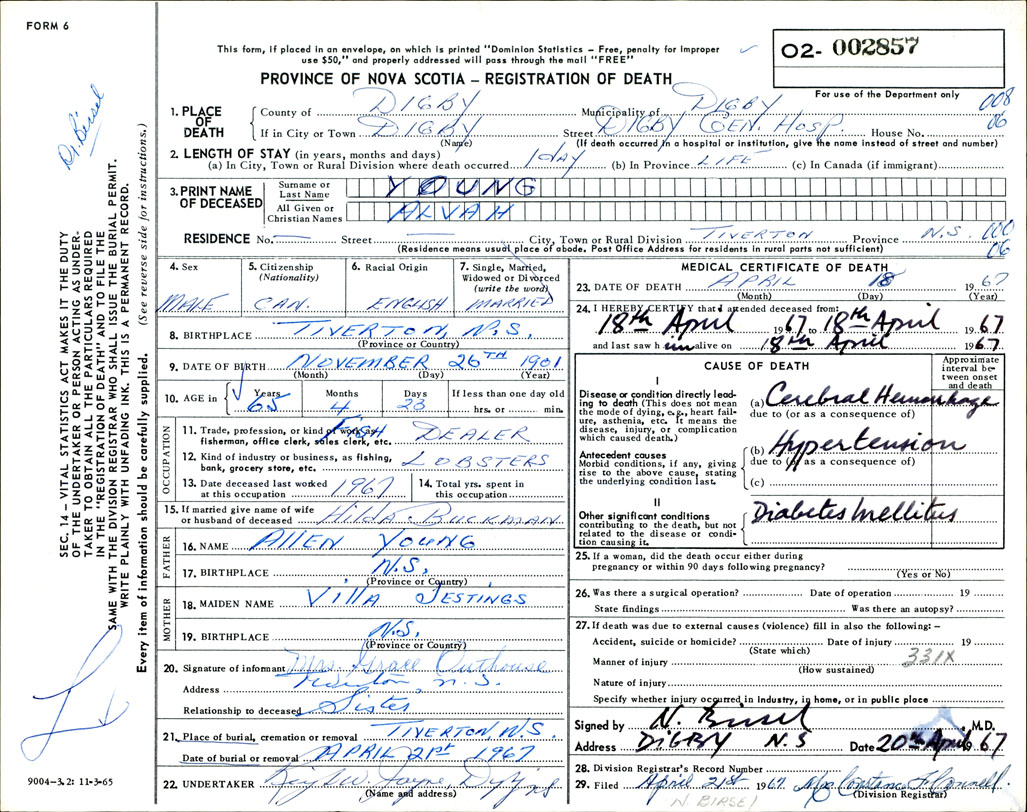 FORM 6
This form, if placed in an envelope, on which is printed "Dominion Statistics – Free, penalty for improper
use $50," and properly addressed will pass through the mail "FREE"
02- 002857
PROVINCE OF NOVA SCOTIA – REGISTRATION OF DEATH
For use of the Department only
008
06
1. PLACE OF DEATH
County of DIGBY Municipality of DIGBY
If in City or Town DIGBY Street DIGBY GEN. HOSP. House No.
(Name) (If death occurred in a hospital or institution, give the name instead of street and number)
2. LENGTH OF STAY (in years, months and days)
(a) In City, Town or Rural Division where death occurred 1 day (b) In Province LIFE (c) In Canada (if immigrant)
3. PRINT NAME OF DECEASED
Surname or Last Name YOUNG
All Given or Christian Names ALVAH
RESIDENCE No. — Street — City, Town or Rural Division TIVERTON Province N.S. 000
06
(Residence means usual place of abode. Post Office Address for residents in rural parts not sufficient)
4. Sex
MALE
5. Citizenship
(Nationality)
CAN.
6. Racial Origin
ENGLISH
7. Single, Married,
Widowed or Divorced
(write the word)
MARRIED
8. BIRTHPLACE TIVERTON, N.S.
(Province or Country)
9. DATE OF BIRTH NOVEMBER 26TH 1901
(Month) (Day) (Year)
10. AGE in
Years
65
Months
4
Days
23
If less than one day old
hrs. or min.
OCCUPATION
11. Trade, profession, or kind of work as
fisherman, office clerk, sales clerk, etc. FISH DEALER
12. Kind of industry or business, as fishing,
bank, grocery store, etc. LOBSTERS
13. Date deceased last worked
at this occupation 1967
14. Total yrs. spent in
this occupation
15. If married give name of wife
or husband of deceased Hilda Buckman
FATHER
16. NAME ALLEN YOUNG
17. BIRTHPLACE N.S.
(Province or Country)
MOTHER
18. MAIDEN NAME VILLA JESTINGS
19. BIRTHPLACE N.S.
(Province or Country)
20. Signature of informant Mrs. Grace Outhouse
Address Tiverton, N.S.
Relationship to deceased Sister
21. Place of burial, cremation or removal TIVERTON N.S.
Date of burial or removal APRIL 21st 1967
22. UNDERTAKER W. Jayne, Digby NS
(Name and address)
MEDICAL CERTIFICATE OF DEATH
23. DATE OF DEATH APRIL 18 1967
(Month) (Day) (Year)
24. I HEREBY CERTIFY that I attended deceased from:
18th April 1967 to 18th April 1967
and last saw him alive on 18th April 1967
CAUSE OF DEATH
Approximate
interval be-
tween onset
and death
I
Disease or condition directly lead-
ing to death (This does not mean
the mode of dying, e.g., heart fail-
ure, asthenia, etc. It means the
disease, injury, or complication
which caused death.)
(a) Cerebral Hemorrhage
due to (or as a consequence of)
Antecedent causes
Morbid conditions, if any, giving
rise to the above cause, stating
the underlying condition last.
(b) Hypertension
due to (or as a consequence of)
(c)
II
Other significant conditions
contributing to the death, but not
related to the disease or condi-
tion causing it.
Diabetes mellitus
25. If a woman, did the death occur either during
pregnancy or within 90 days following pregnancy?
(Yes or No)
26. Was there a surgical operation? Date of operation 19
State findings Was there an autopsy?
27. If death was due to external causes (violence) fill in also the following: –
Accident, suicide or homicide? Date of injury 19
(State which)
Manner of injury 331X
(How sustained)
Nature of injury
Specify whether injury occurred in Industry, in home, or in public place
Signed by N. Birsel, M.D.
Address DIGBY N.S Date 20th April 67
28. Division Registrar's Record Number
29. Filed April 21st 1967
(Division Registrar)
N. BIRSEL
Dr. Birsel
SEC. 14 – VITAL STATISTICS ACT MAKES IT THE DUTY
OF THE UNDERTAKER OR PERSON ACTING AS UNDER-
TAKER TO OBTAIN ALL THE PARTICULARS REQUIRED
IN THE "REGISTRATION OF DEATH" AND TO FILE THE
SAME WITH THE DIVISION REGISTRAR WHO SHALL ISSUE THE BURIAL PERMIT.
WRITE PLAINLY WITH UNFADING INK. THIS IS A PERMANENT RECORD.
Every item of information should be carefully supplied. (See reverse side for instructions.)
9004-3.2: 11-3-65